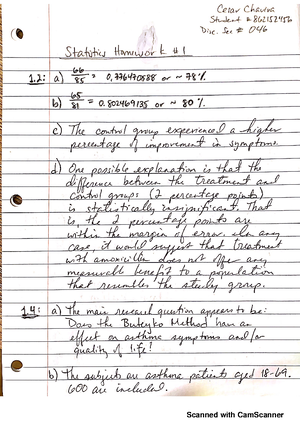 Cesar Chavira
Student # 862152456
Disc. Sec # 046
Statistics Homework #1
1.2: a) 66/85 = 0.776470588 or ~ 78%
b) 65/81 = 0.802469135 or ~ 80%
c) The control group experienced a higher
percentage of improvement in symptoms.
d) One possible explanation is that the
difference between the treatment and
control groups (2 percentage points)
is statistically insignificant. That
is, the 2 percentage points are
within the margin of error. In any
case, it would suggest that treatment
with amoxicillin does not offer any
measurable benefit to a population
that resembles the study group.
1.4: a) The main research question appears to be:
Does the Buteyko Method have an
effect on asthma symptoms and/or
quality of life?
b) The subjects are asthma patients aged 18-69.
600 are included.
Scanned with CamScanner